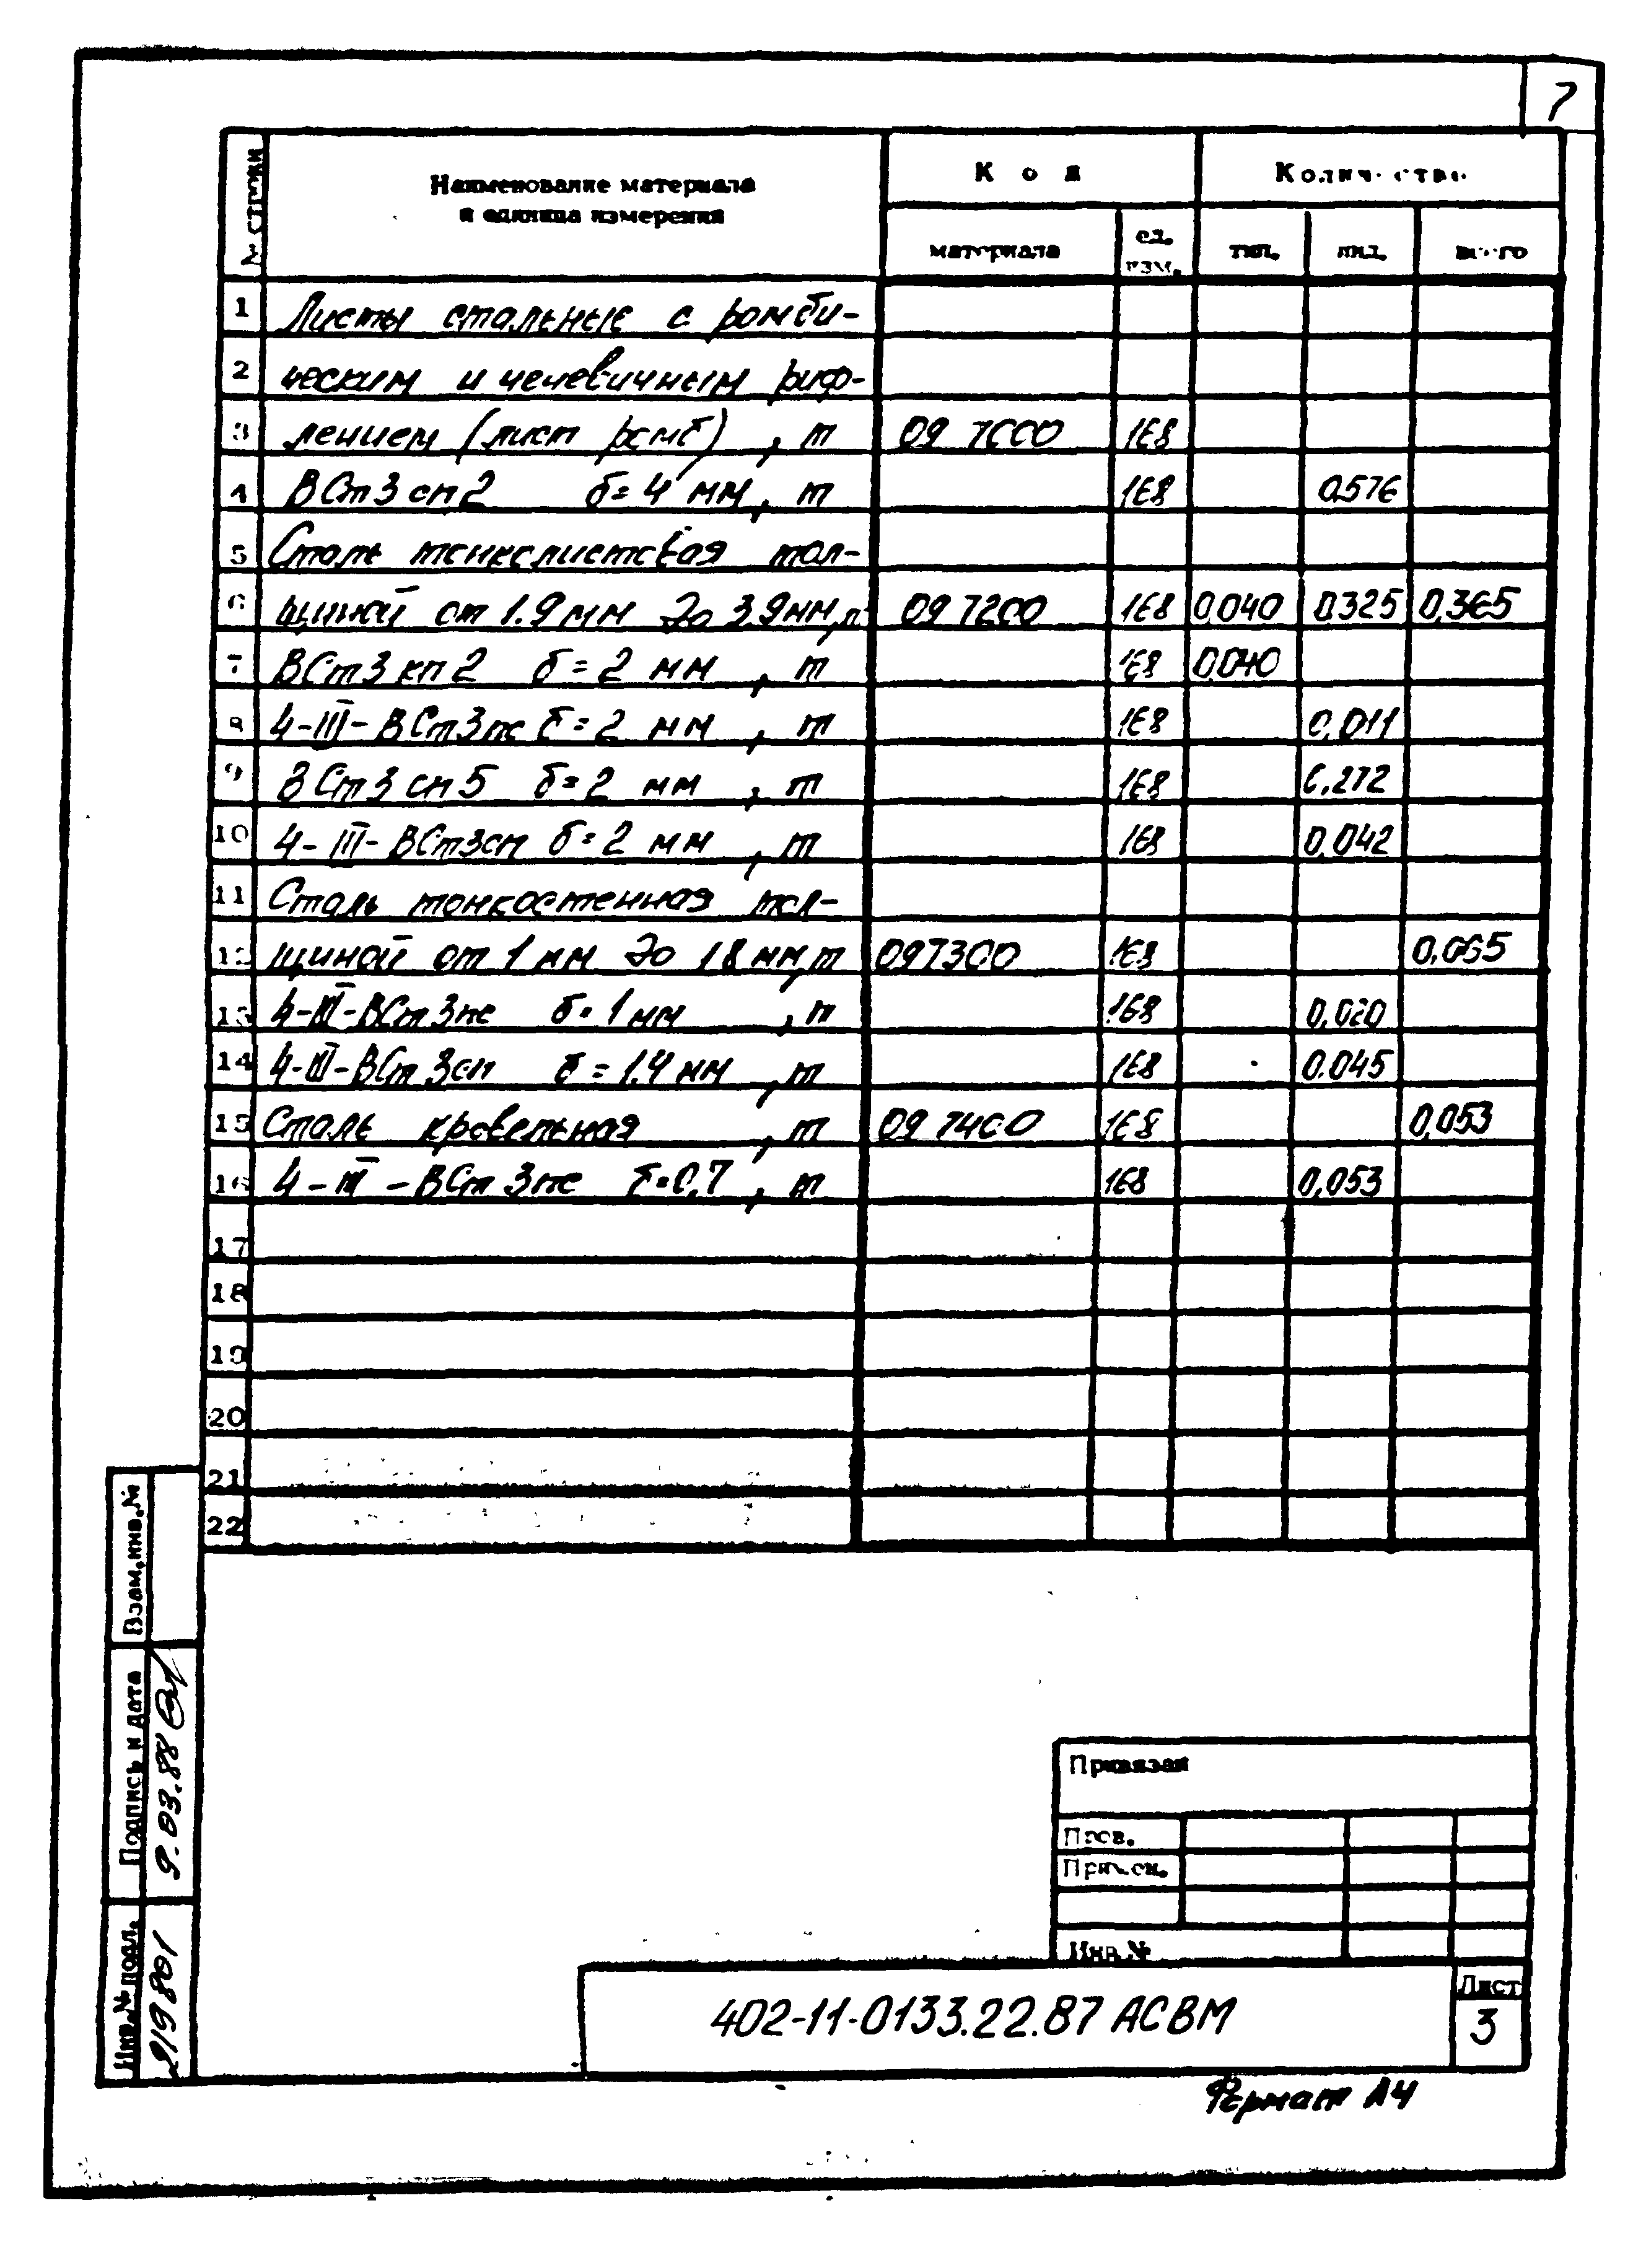 7
№ строки Наименование материала и единица измерения Код Количество
материала ед. изм. тип. инд. всего
1 Листы стальные с ромби-
2 ческим и чечевичным риф-
3 лением (лист ромб), т 09 7000 168
4 ВСт3сп2 б=4 мм, т 168 0,576
5 Сталь тонколистовая тол-
6 щиной от 1.9 мм до 3.9 мм, т 09 7200 168 0,040 0,325 0,365
7 ВСт3кп2 б=2 мм, т 168 0,040
8 4-III-ВСт3пс б=2 мм, т 168 0,011
9 ВСт3сп5 б=2 мм, т 168 0,272
10 4-III-ВСт3сп б=2 мм, т 168 0,042
11 Сталь тонкостенная тол-
12 щиной от 1 мм до 1.8 мм, т 097300 168 0,065
13 4-III-ВСт3пс б=1 мм, т 168 0,020
14 4-III-ВСт3сп б=1.4 мм, т 168 0.045
15 Сталь кровельная, т 09 7400 168 0,053
16 4-III-ВСт3пс б=0,7, т 168 0,053
17
18
19
20
21
22
Взам.инв.№
Подпись и дата 9.03.88
Инв.№ подл. 219801
Привязан
Пров.
Инв.№
402-11-0133.22.87 АСВМ
Лист
3
Формат А4